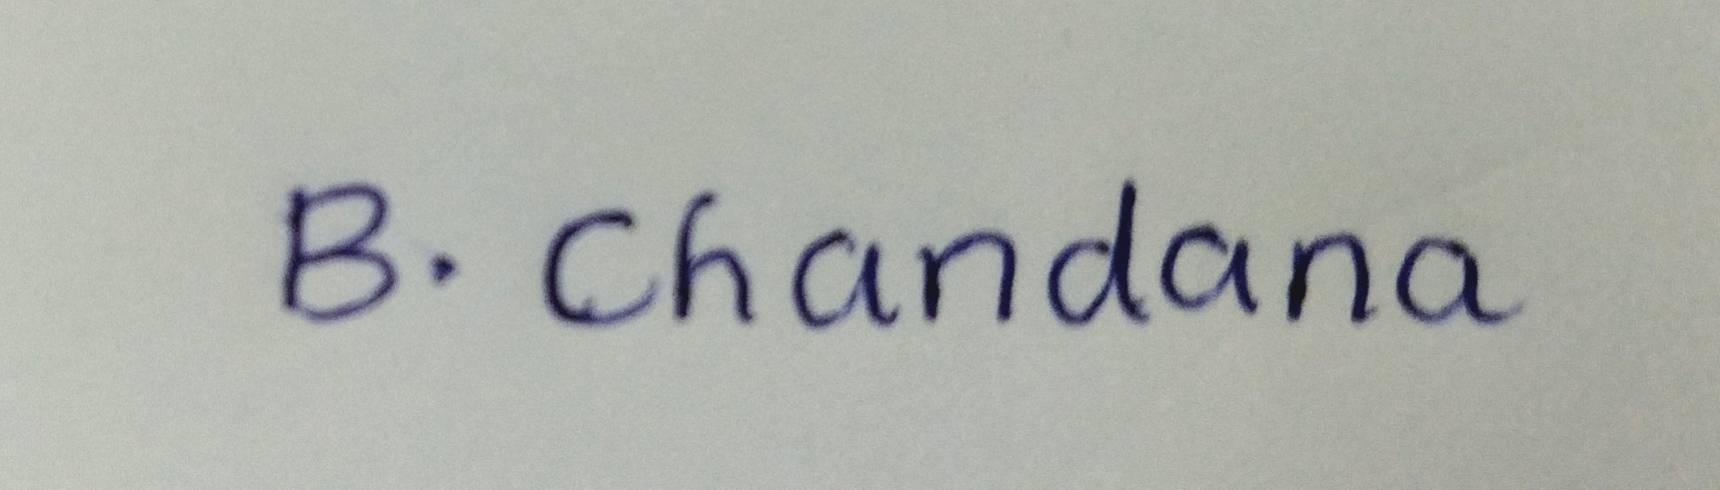 B. Chandana